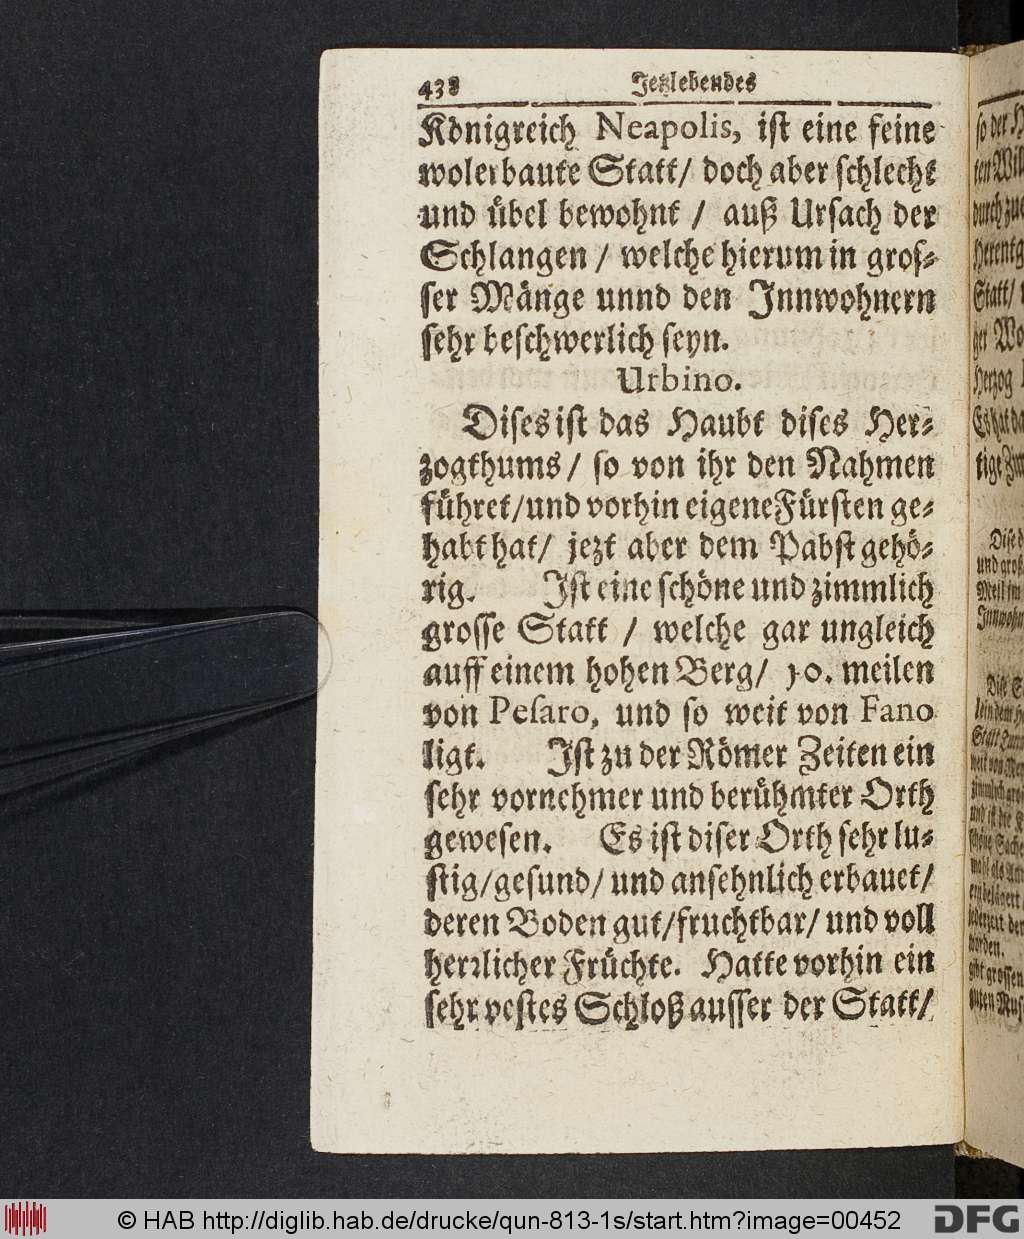 438 Jetzlebendes
Königreich Neapolis, ist eine feine
wolerbaute Statt/ doch aber schlecht
und übel bewohnt / auß Ursach der
Schlangen / welche hierum in gros-
ser Mänge unnd den Innwohnern
sehr beschwerlich seyn.
Urbino.
Dises ist das Haubt dises Her-
zogthums / so von ihr den Nahmen
führet/und vorhin eigene Fürsten ge-
habt hat/ jezt aber dem Pabst gehö-
rig. Ist eine schöne und zimmlich
grosse Statt / welche gar ungleich
auff einem hohen Berg/ 30. meilen
von Pesaro, und so weit von Fano
ligt. Ist zu der Römer Zeiten ein
sehr vornehmer und berühmter Orth
gewesen. Es ist diser Orth sehr lu-
stig/gesund/ und ansehnlich erbauet/
deren Boden gut/fruchtbar/ und voll
herrlicher Früchte. Hatte vorhin ein
sehr vestes Schloß ausser der Statt/
so der
ten Wil
durch zue
Herentg
Statt/
ger Wo
Herzog
Es hat da
tige Zim
Dise d
und groß
Meil im
Innwohn
Dise S
© HAB http://diglib.hab.de/drucke/qun-813-1s/start.htm?image=00452
DFG